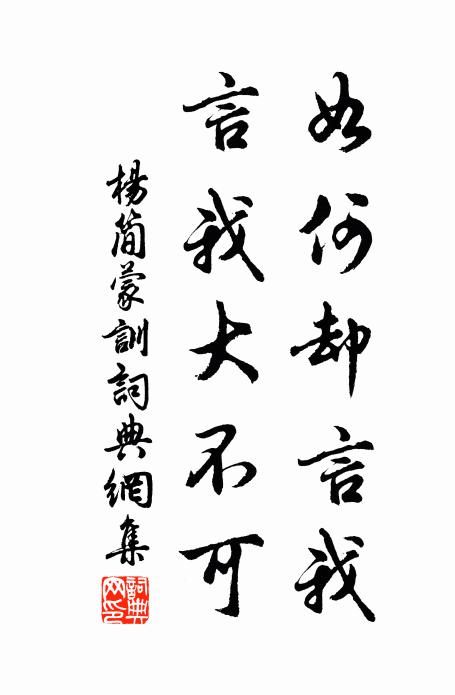 如何却言我
言我大不可
楊簡蒙訓詞典網集
詞典网印